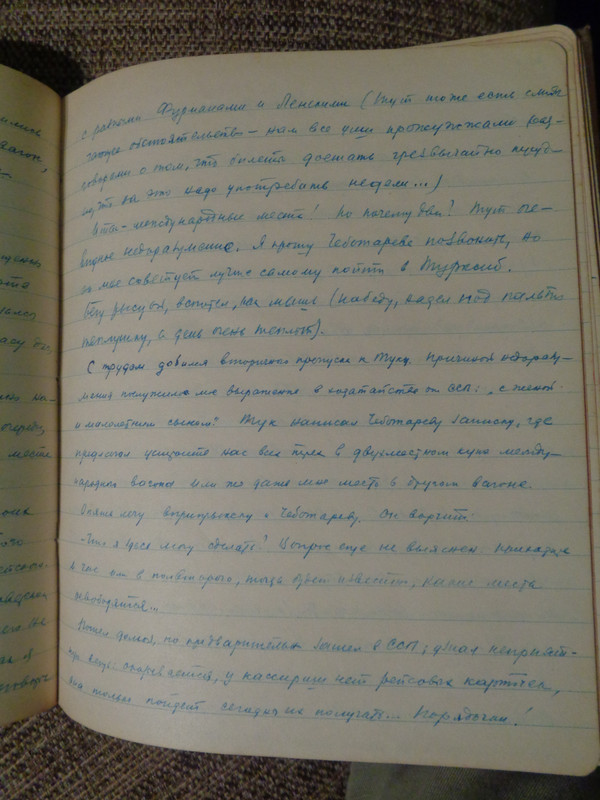 с рабочими Фурманами и Ленскими (тут тоже есть смяг-
чающее обстоятельство — нам все уши прожужжали раз-
говорами о том, что билеты достать чрезвычайно труд-
но, что на это надо употребить недели...)
Итак — международные места! Но почему два? Тут оче-
видное недоразумение. Я прошу Чеботарева позвонить, но
он мне советует лучше самому пойти в Турксиб.
Бегу рысцой, вспотел, как мышь (на беду, надел под пальто
телогрейку, а день очень теплый).
С трудом добился вторичного пропуска к Туку. Причиной недоразу-
мения послужило мое выражение в ходатайстве от ССП: „с женой
и малолетним сыном". Тук написал Чеботареву записку, где
предлагал устроить нас всех троих в двухместном купе между-
народного вагона или же дать мне место в другом вагоне.
Опять лечу вприпрыжку к Чеботареву. Он ворчит:
— Что я здесь могу сделать? Вопрос еще не выяснен. Приходите
в час или в половине второго, тогда будет известно, какие места
найдутся...
Пошел домой, но предварительно зашел в ССП; узнал неприят-
ную вещь: оказывается, у кассирши нет рейсовых карточек,
она только пойдет сегодня их получать... Порядочки!